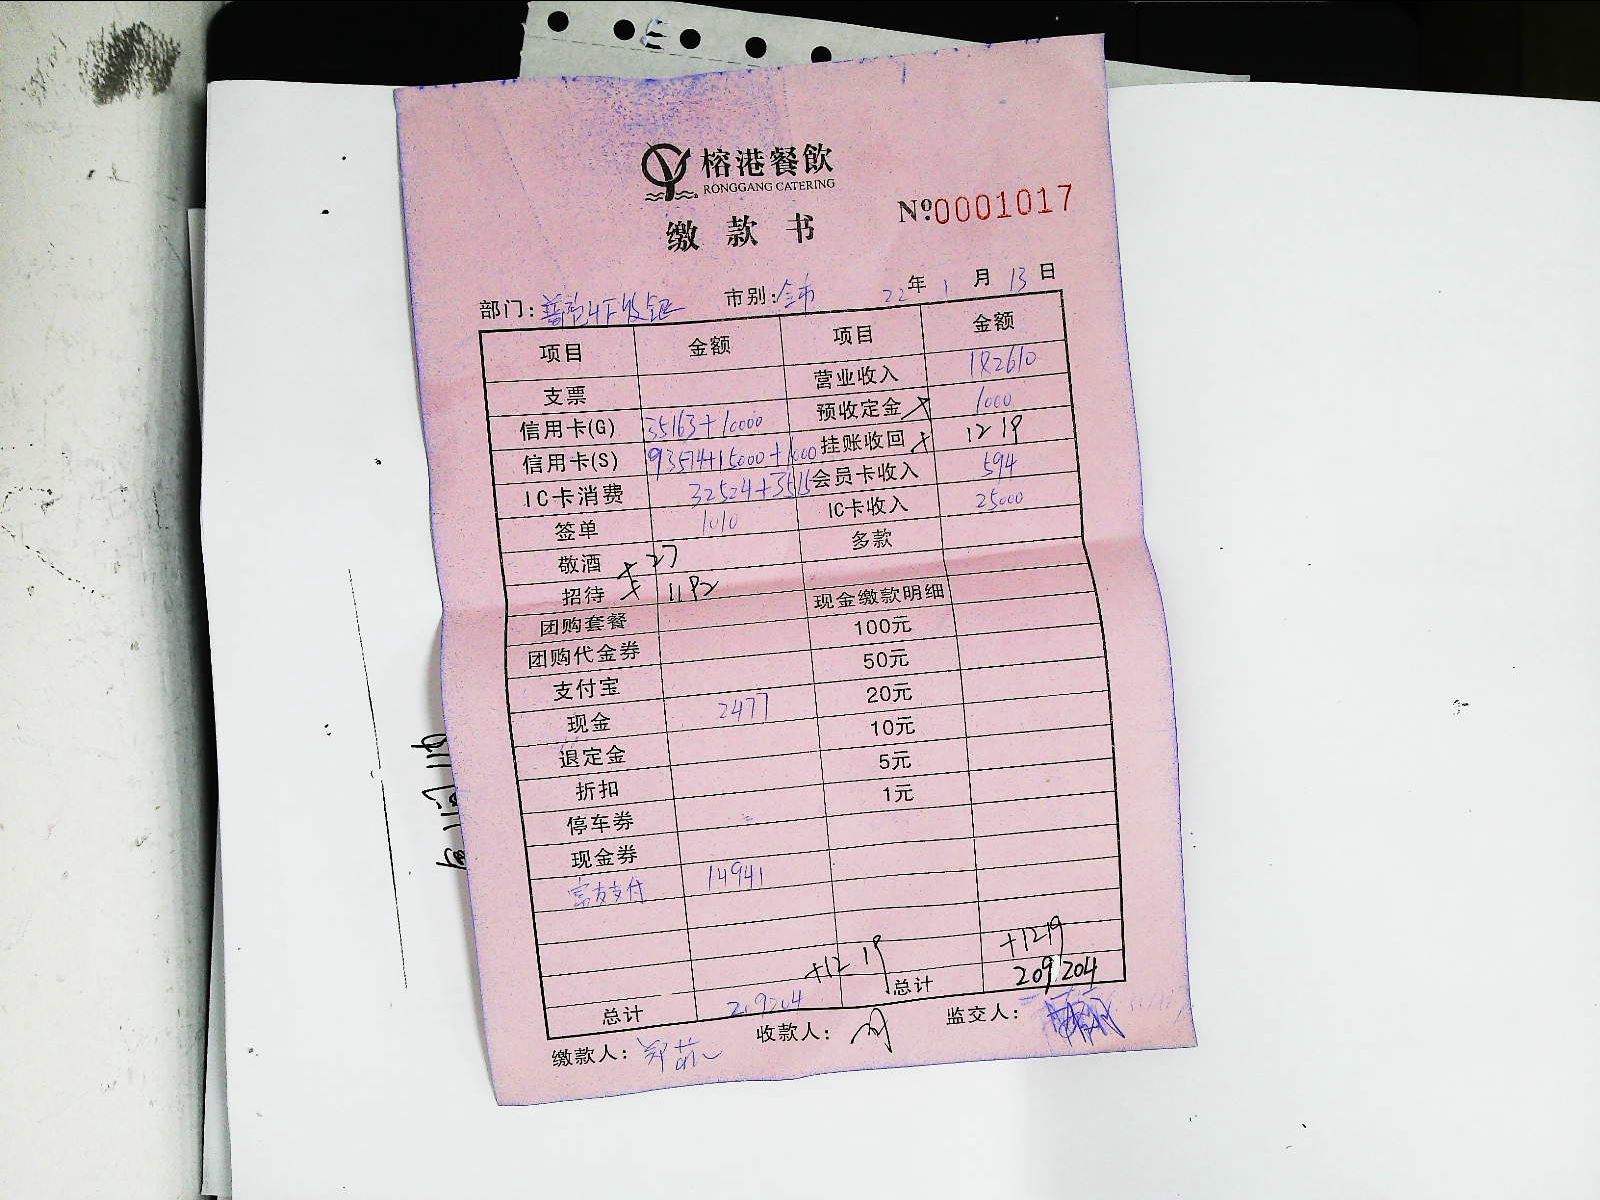 榕港餐飲
RONGGANG CATERING
缴款书
№0001017
部门: 市别:全市 22年1月13日
项目 金额 项目 金额
支票 营业收入 182610
信用卡(G) 35163+10000 预收定金 1000
信用卡(S) 93574+15000+1000 挂账收回 1219
IC卡消费 32524+3515 会员卡收入 594
签单 1010 IC卡收入 25000
敬酒 27 多款
招待 1192
团购套餐 现金缴款明细
团购代金券 100元
支付宝 50元
现金 2477 20元
退定金 10元
折扣 5元
停车券 1元
现金券
富友支付 14941
+1219 +1219
总计 209204 总计 209204
缴款人: 收款人: 监交人: